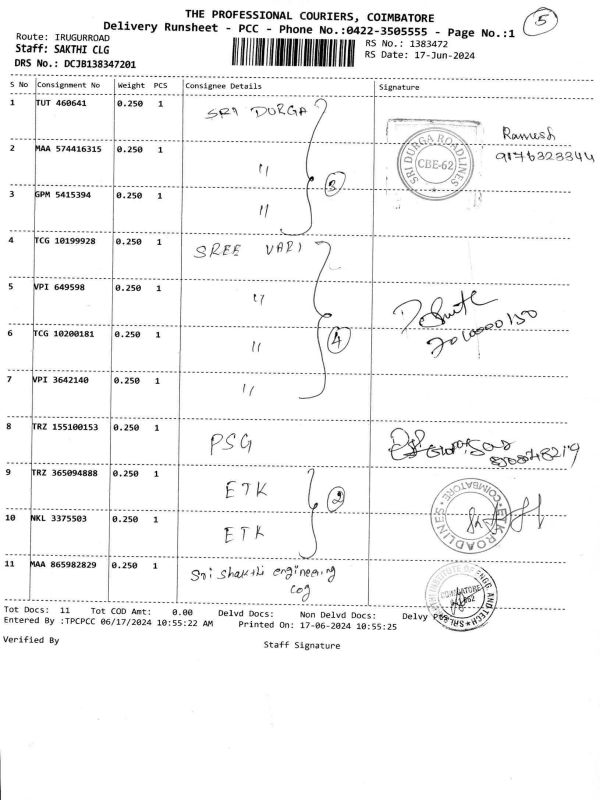 THE PROFESSIONAL COURIERS, COIMBATORE
5
Delivery Runsheet - PCC - Phone No.:0422-3505555 - Page No.:1
Route: IRUGURROAD
RS No.: 1383472
Staff: SAKTHI CLG
RS Date: 17-Jun-2024
DRS No.: DCJB138347201
S No Consignment No Weight PCS Consignee Details Signature
1 TUT 460641 0.250 1 SRI DURGA
Ramesh
9176323344
SRI DURGA ROADLINES
CBE-62
2 MAA 574416315 0.250 1 "
3
3 GPM 5415394 0.250 1 "
4 TCG 10199928 0.250 1 SREE VARI
5 VPI 649598 0.250 1 "
6 TCG 10200181 0.250 1 "
4
7 VPI 3642140 0.250 1 "
8 TRZ 155100153 0.250 1 PSG
9 TRZ 365094888 0.250 1 ETK
2
ETK ROADLINES
COIMBATORE
10 NKL 3375503 0.250 1 ETK
11 MAA 865982829 0.250 1 Sri Shakthi engineering
Clg
Tot Docs: 11 Tot COD Amt: 0.00 Delvd Docs: Non Delvd Docs: Delvy P
Entered By :TPCPCC 06/17/2024 10:55:22 AM Printed On: 17-06-2024 10:55:25
Verified By
Staff Signature